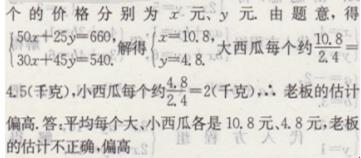 个的价格分别为 x 元、y 元. 由题意,得
{50x+25y=660, 解得 {x=10.8, 大西瓜每个约 10.8/2.4 =
{30x+45y=540. {y=4.8.
4.5(千克),小西瓜每个约 4.8/2.4 =2(千克),∴ 老板的估计
偏高. 答,平均每个大、小西瓜各是 10.8 元、4.8 元,老板
的估计不正确,偏高